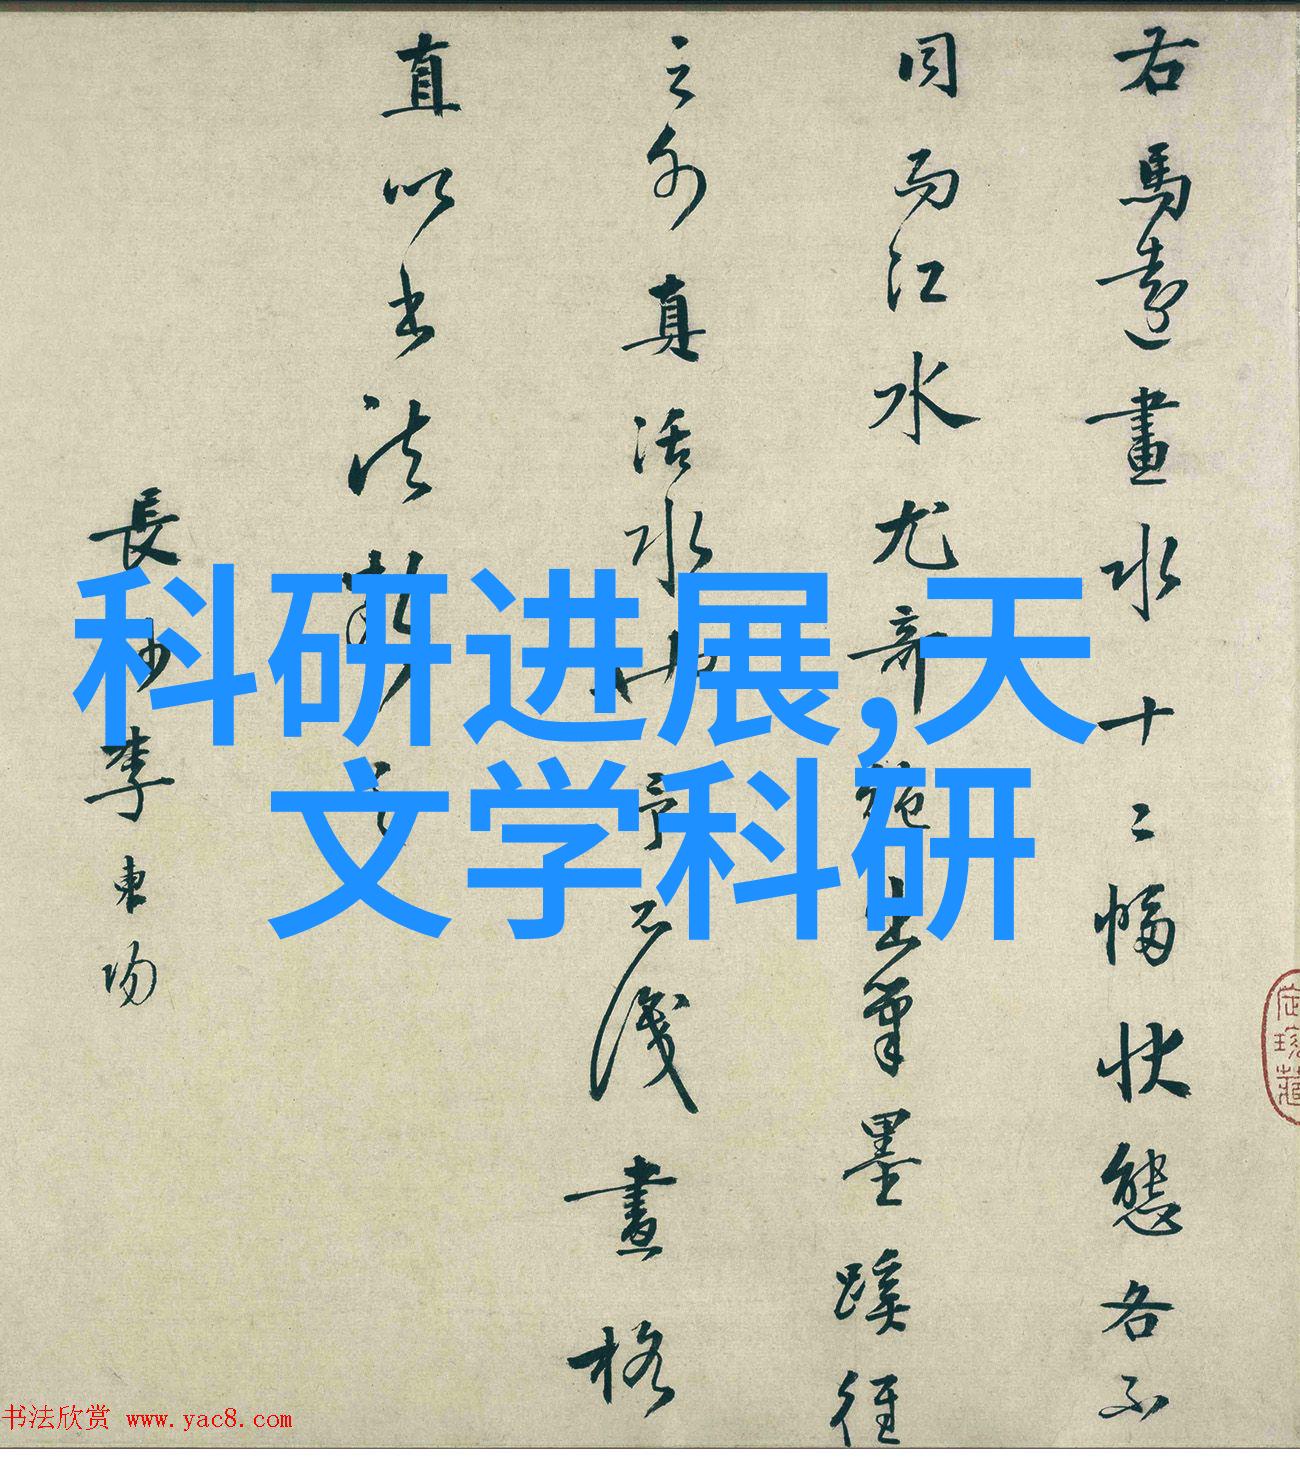 右馬遠畫水十二幅狀態各不
同而江水尤奇絶出筆墨蹊徑
之外真活水也予不識畫格
直以書法觀之
長沙李東陽
科研进展,天
文学科研
书法欣赏 www.yac8.com